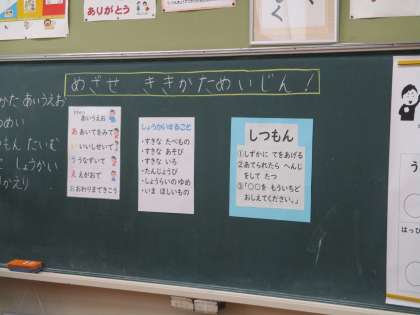 ありがとう
めざせ ききかためいじん!
かた あいうえお
めい
もん たいむ
しょうかい
かえり
ききかた
あいうえお
あ あいてをみて
い いいしせいで
う うなずいて
え えがおで
お おわりまできこう
しょうかいすること
・すきな たべもの
・すきな あそび
・すきな いろ
・たんじょうび
・しょうらいの ゆめ
・いま ほしいもの
しつもん
①しずかに てをあげる
②あてられたら へんじ
をして たつ
③「○○を もういちど
おしえてください。」
う
はっぴ